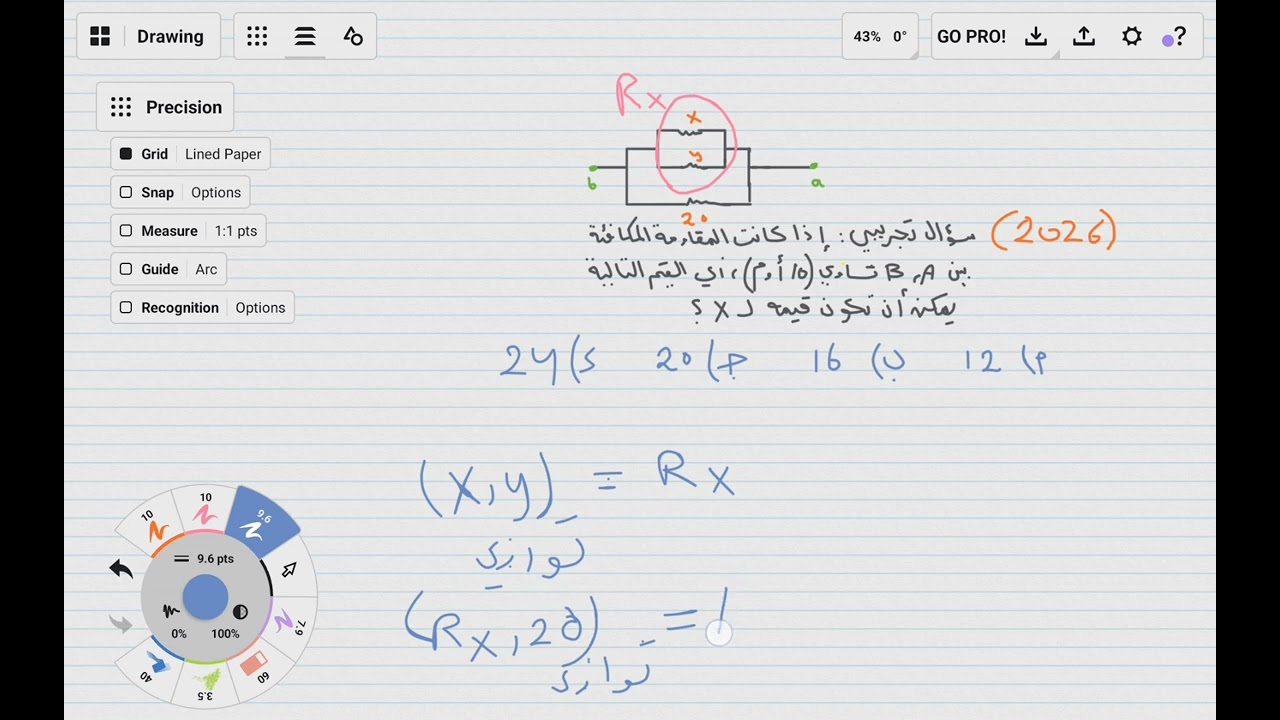 Drawing
43% 0° GO PRO! ?
Precision
Grid Lined Paper
Snap Options
Measure 1:1 pts
Guide Arc
Recognition Options
Rx
x
y
b a
20
(2026) سؤال تجريبي: إذا كانت المقاومة المكافئة
بين A, B تساوي (10 أوم)، أي القيم التالية
يمكن أن تكون قيمه لـ X ؟
أ) 12 ب) 16 جـ) 20 د) 24
(x,y) = Rx
توازي
(Rx,20) =
توازي
10 10 9.6
9.6 pts
0% 100%
7.9
40 3.5 60